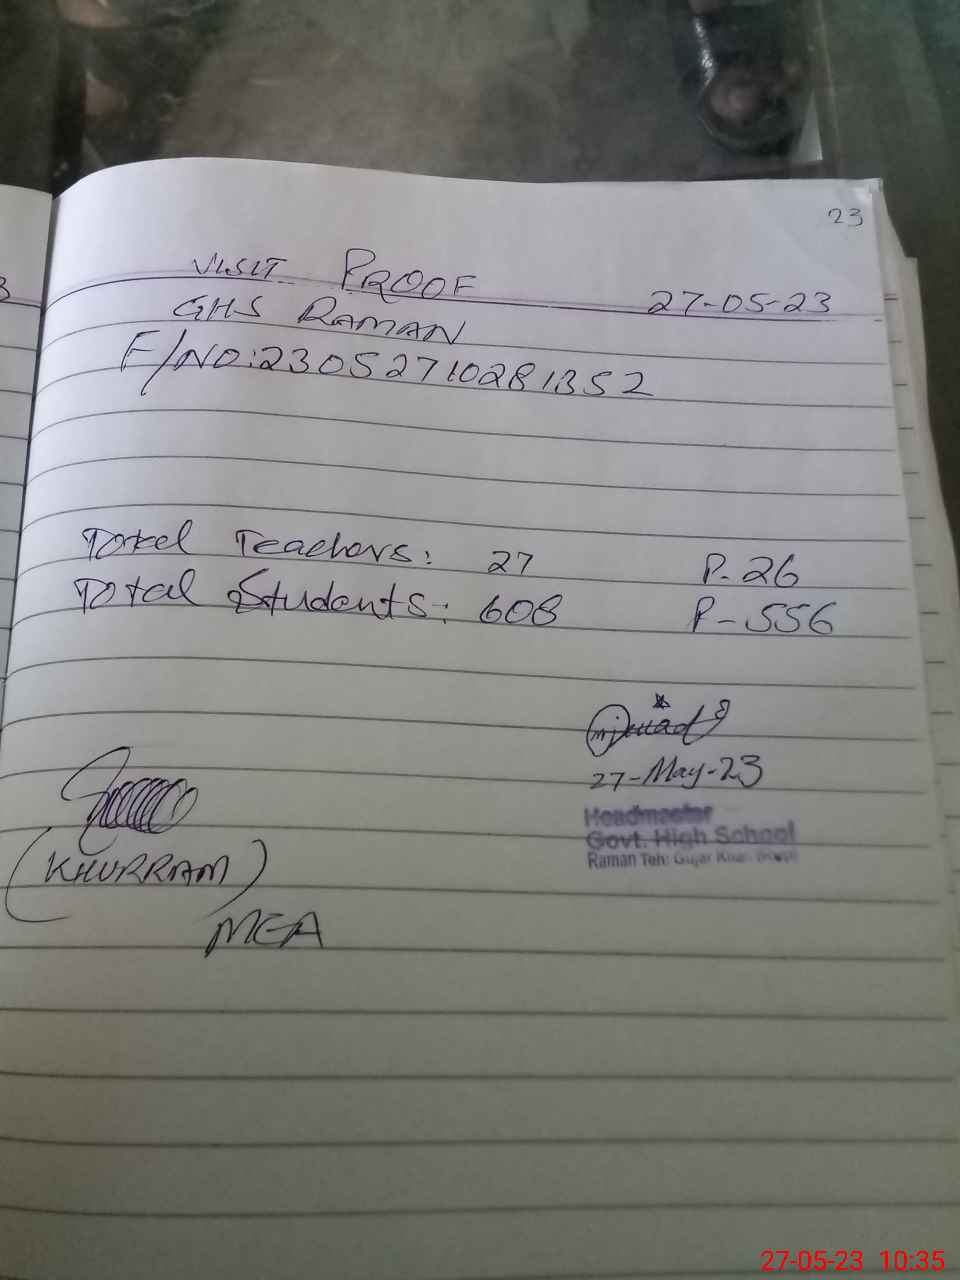 23
VISIT PROOF 27-05-23
GHS RAMAN
F/NO:23052710281352
Total Teachers: 27 P-26
Total Students: 608 P-556
27-May-23
Headmaster
Govt. High School
Raman Teh: Gujar Khan
(KHURRAM)
MEA
27-05-23 10:35